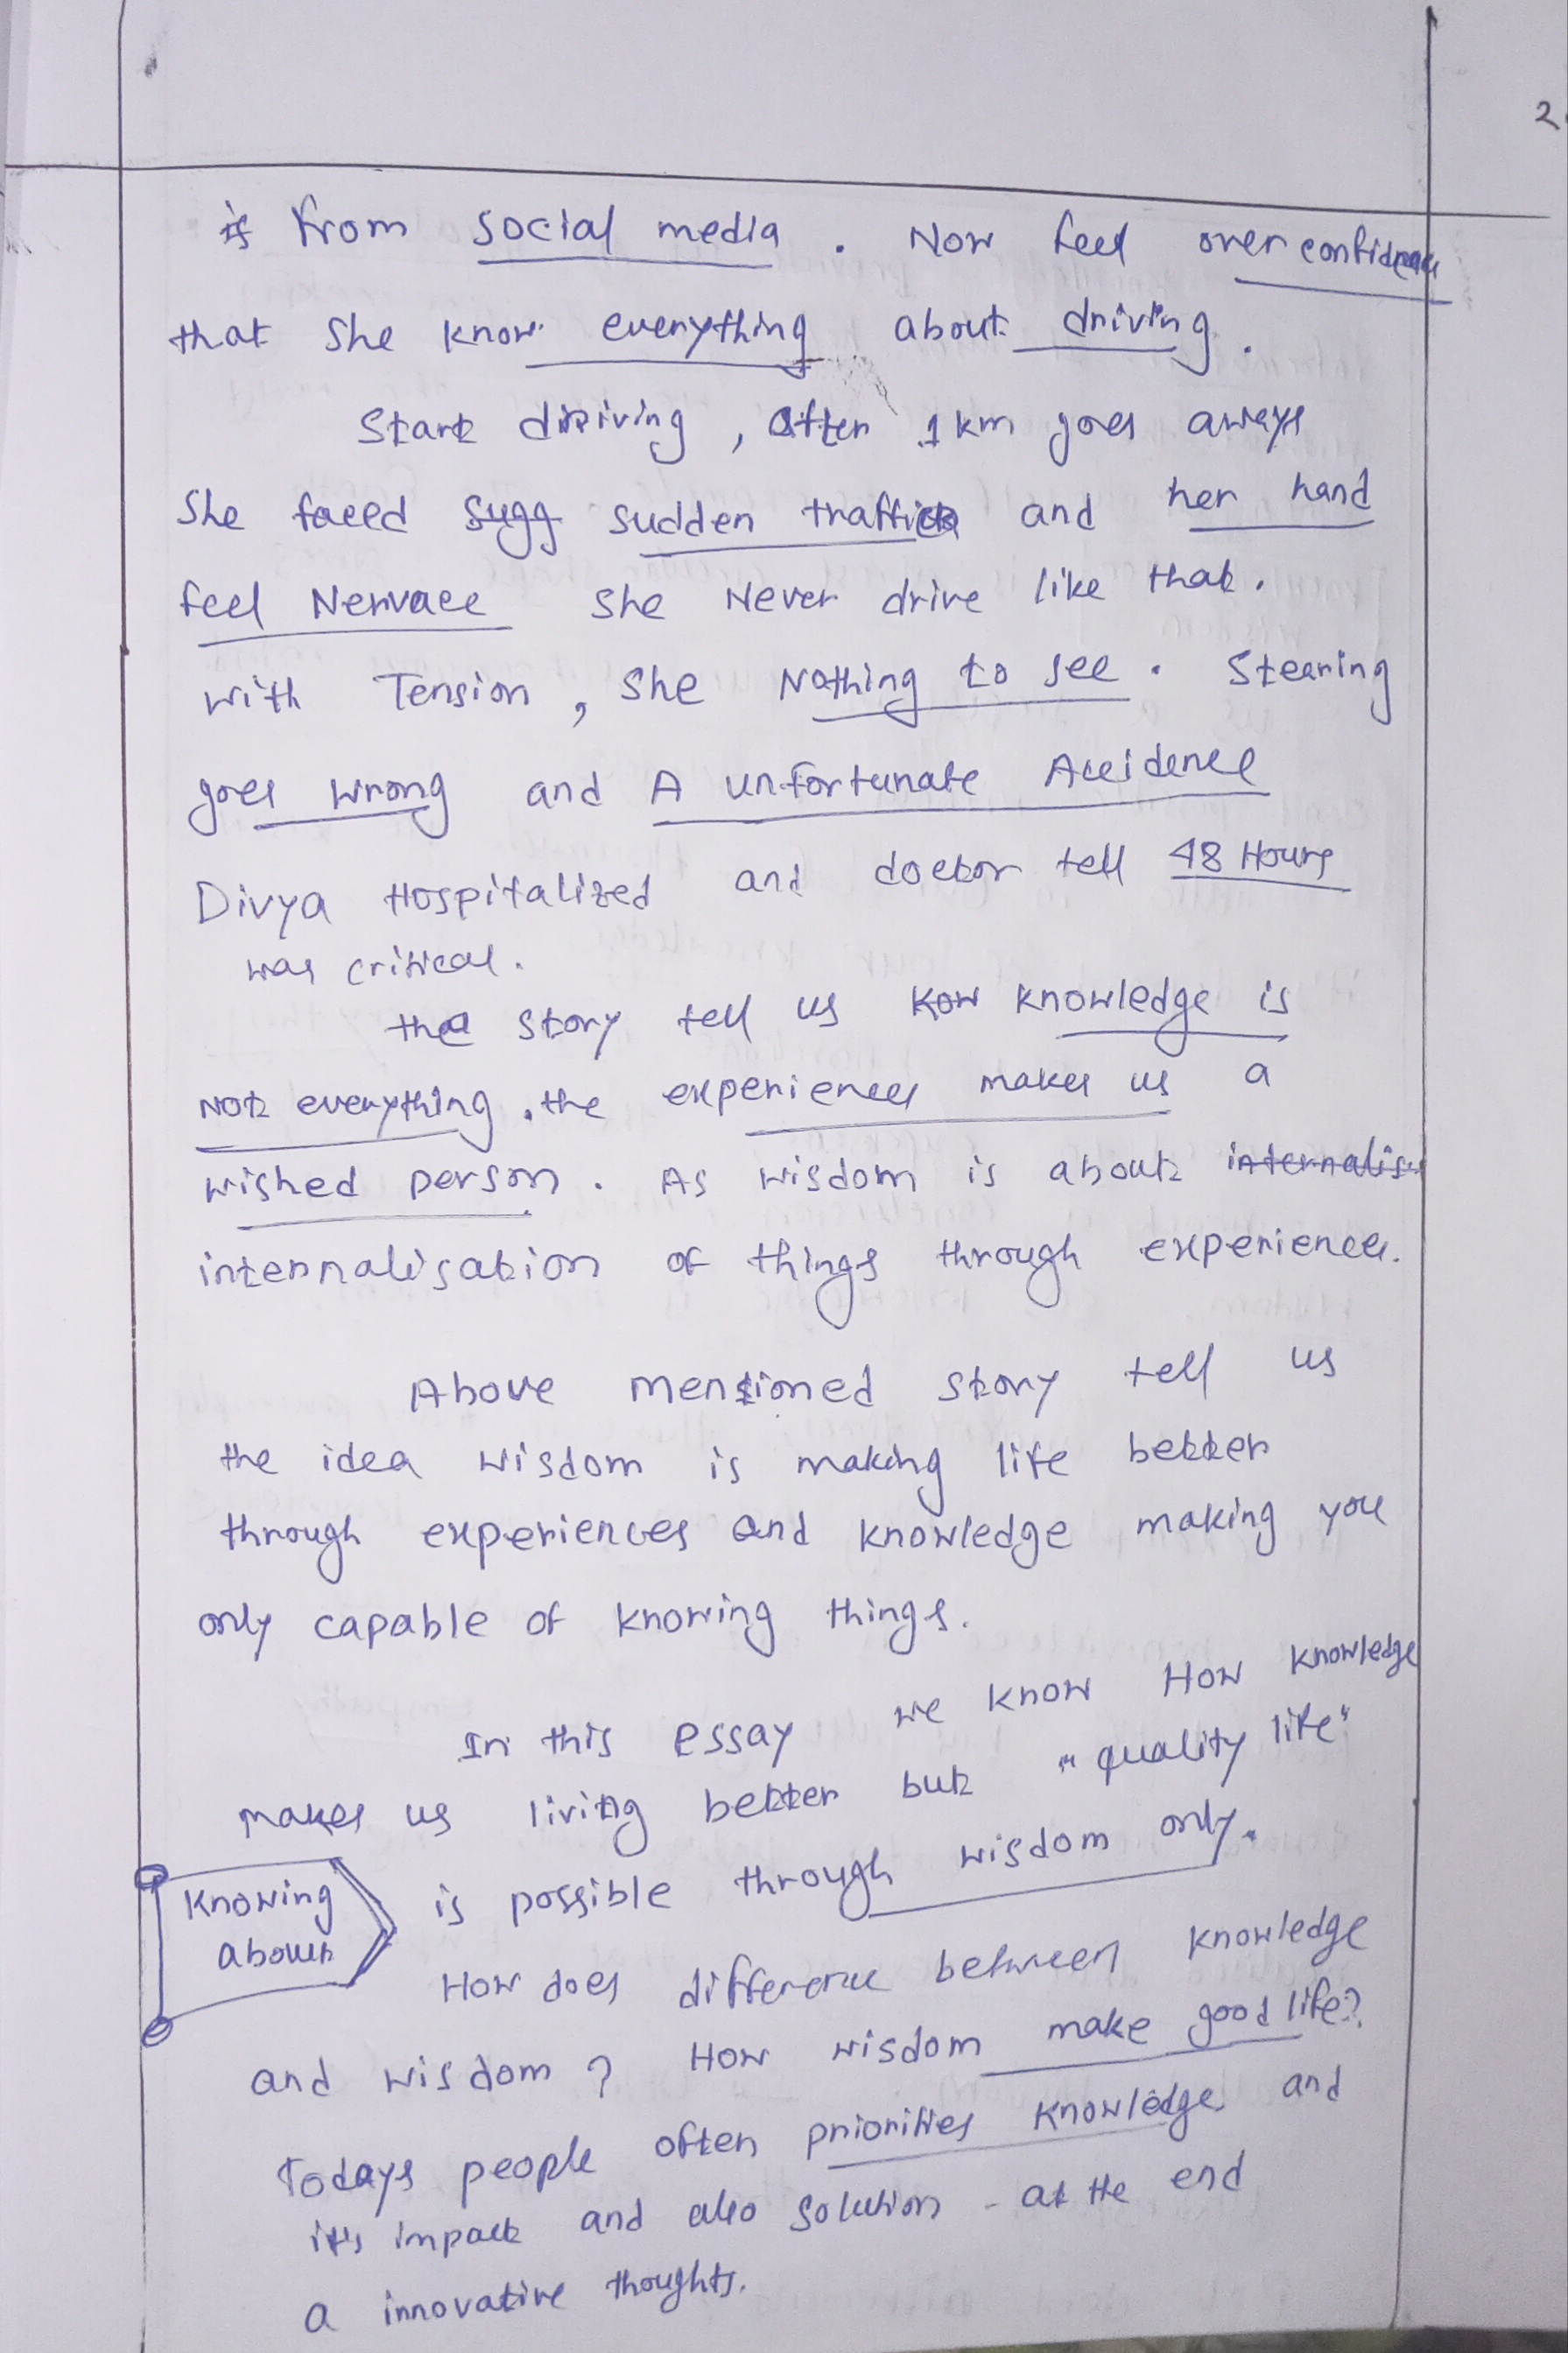 2
is from social media . Now feel over confidence
that she know everything about driving.
Start driving , after 1 km goes aways
She faced sugg sudden traffick and her hand
feel Nervace she Never drive like that.
with Tension , she Nothing to see . Stearing
goes wrong and A unfortunate Accidence
Divya Hospitalized and doctor tell 48 Hours
was critical.
the story tell us Kow knowledge is
Not everything . the experiences makes us a
wished person . As wisdom is about internalis
internalisation of things through experiences.
Above mentioned story tell us
the idea wisdom is making life better
through experiences and knowledge making you
only capable of knowing things.
In this essay we know How knowledge
makes us living better but "quality life"
is possible through wisdom only.
Knowing
about
How does difference between knowledge
and wisdom ? How wisdom make good life?
Todays people often priorities knowledge and
it's impact and also solution - at the end
a innovative thoughts.